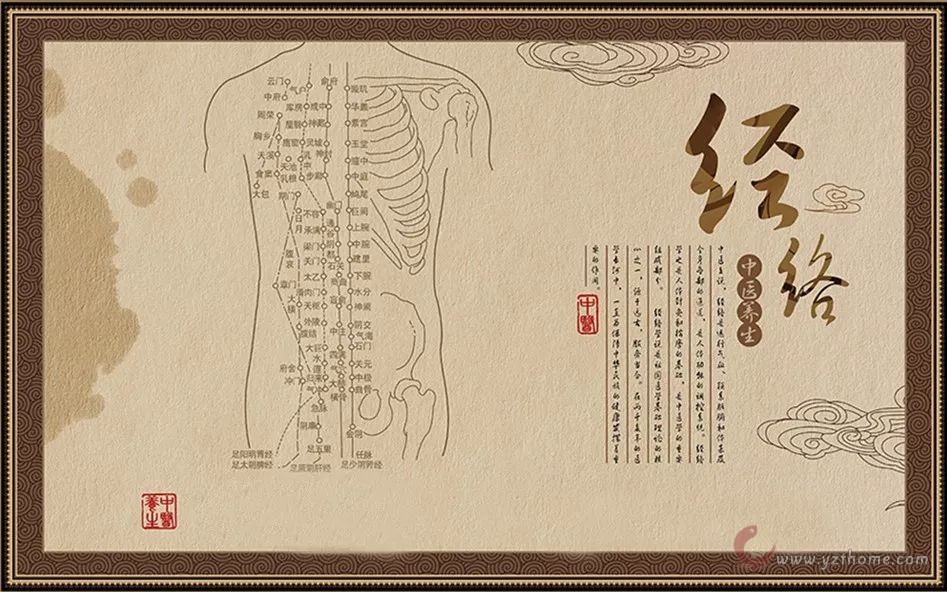 经络
中医养生
中医主说,经络是运行气血、联系脏腑和体表及
全身各部的通道,是人体功能的调控系统。经络
学也是人体针灸和按摩的基础,是中医学的重要
组成部分。 经络学说是祖国医学基础理论的核
心之一,源于远古,服务当今。在两千多年的医
学长河中,一直为保障中华民族的健康发挥着重
要的作用。
中醫
云门
气户
俞府
璇玑
中府
库房
彧中
华盖
周荣
屋翳
神藏
紫宫
胸乡
膺窗
灵墟
玉堂
天溪
乳中
神封
膻中
天池
食窦
乳根
步廊
中庭
大包
期门
鸠尾
幽门
不容
巨阙
日月
承满
通谷
上脘
梁门
阴都
中脘
腹哀
关门
石关
建里
太乙
商曲
下脘
章门
滑肉门
肓俞
水分
大横
天枢
神阙
外陵
中注
阴交
腹结
气海
大巨
四满
石门
水道
气穴
关元
府舍
归来
大赫
中极
冲门
气冲
横骨
曲骨
急脉
阴廉
会阴
足五里
足阳明胃经
足太阴脾经
足厥阴肝经
任脉
足少阴肾经
中醫養生
www.yzthome.com